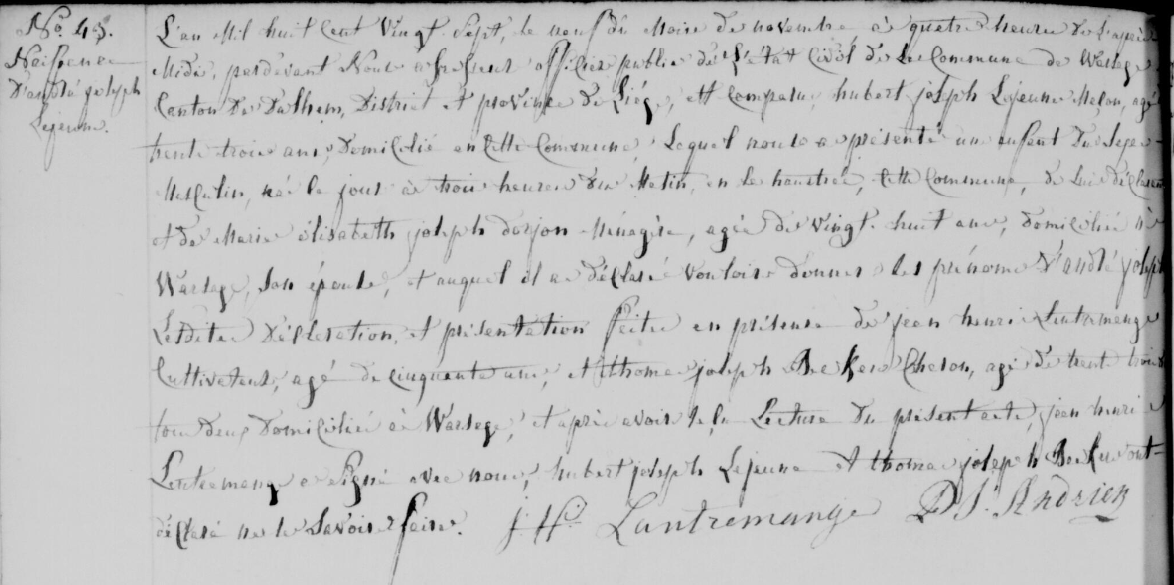 No. 43.
Naissance
D'andré joseph
Lejeune.
L'an Mil huit Cent Vingt Sept, le neuf du Mois de novembre à quatre heures de L'après
Midi, pardevant Nous soussigné officier public de L'état Civil de la Commune de Warsage
Canton de Dalhem, District et province de Liége, est Comparu, hubert joseph Lejeune Maçon, agé
trente trois ans, Domicilié en Cette Commune, Lequel nous a présenté un enfant du Sexe
Masculin, né le jour à trois heures du Matin, en la houstrée, Cette Commune, de Lui déclarant
et de Marie élisabeth joseph dorjon Ménagère, agée de vingt huit ans, domiciliée à
Warsage, Son épouse, et auquel il a Déclaré vouloir donner les prénoms d'andré joseph
Lesdites Déclaration, et présentation faites en présence de jean henri Lantremange
Cultivateur, agé de cinquante ans, et thomas joseph Charon, agé de trente trois
tous deux Domiciliés à Warsage, et après avoir Lecture du présent acte, jean henri
Lantremange a Signé avec nous, hubert joseph Lejeune et thomas joseph ont
déclaré ne le Savoir faire. J. H. Lantremange D J. Andrien